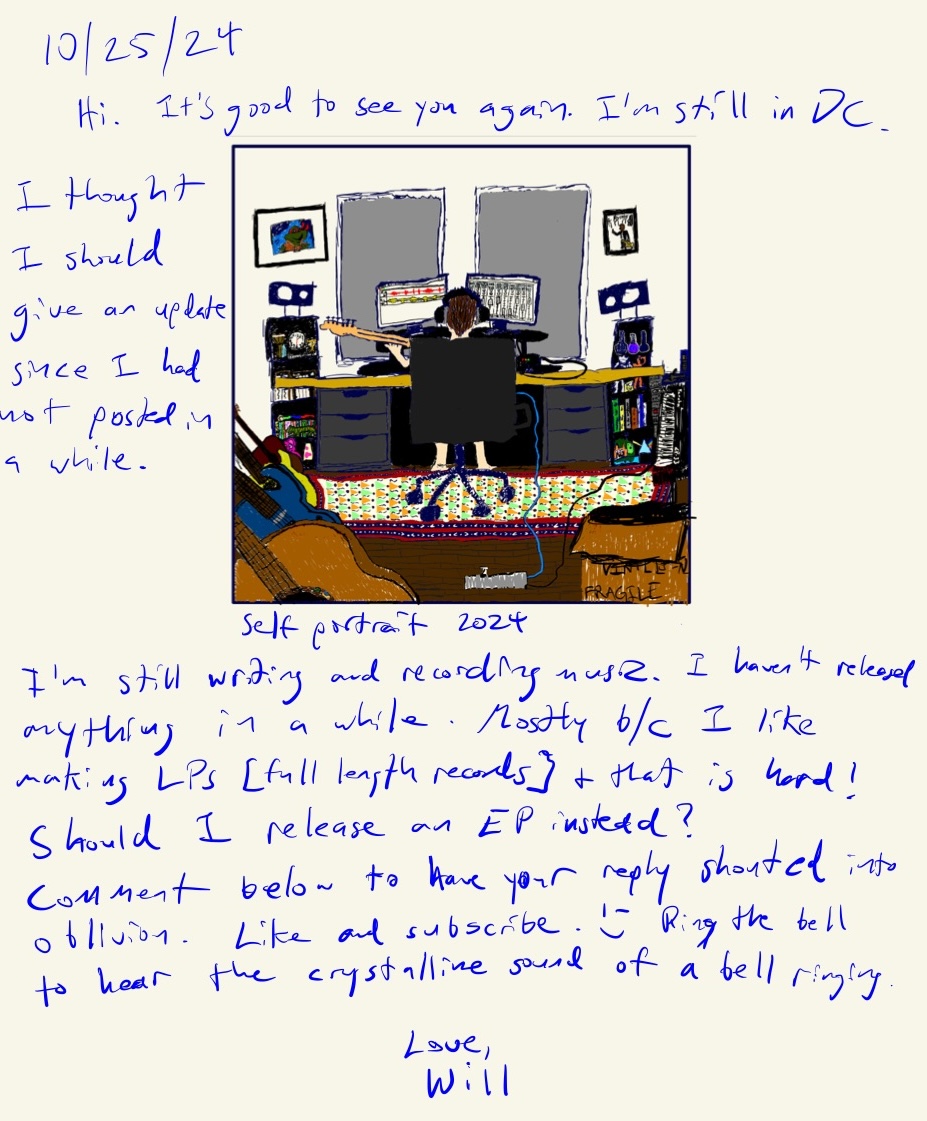 10/25/24
Hi. It's good to see you again. I'm still in DC.
I thought
I should
give an update
since I had
not posted in
a while.
FRAGILE
Self portrait 2024
I'm still writing and recording music. I haven't released
anything in a while. Mostly b/c I like
making LPs [full length records] + that is hard!
Should I release an EP instead?
Comment below to have your reply shouted into
oblivion. Like and subscribe. :) Ring the bell
to hear the crystalline sound of a bell ringing.
Love,
Will